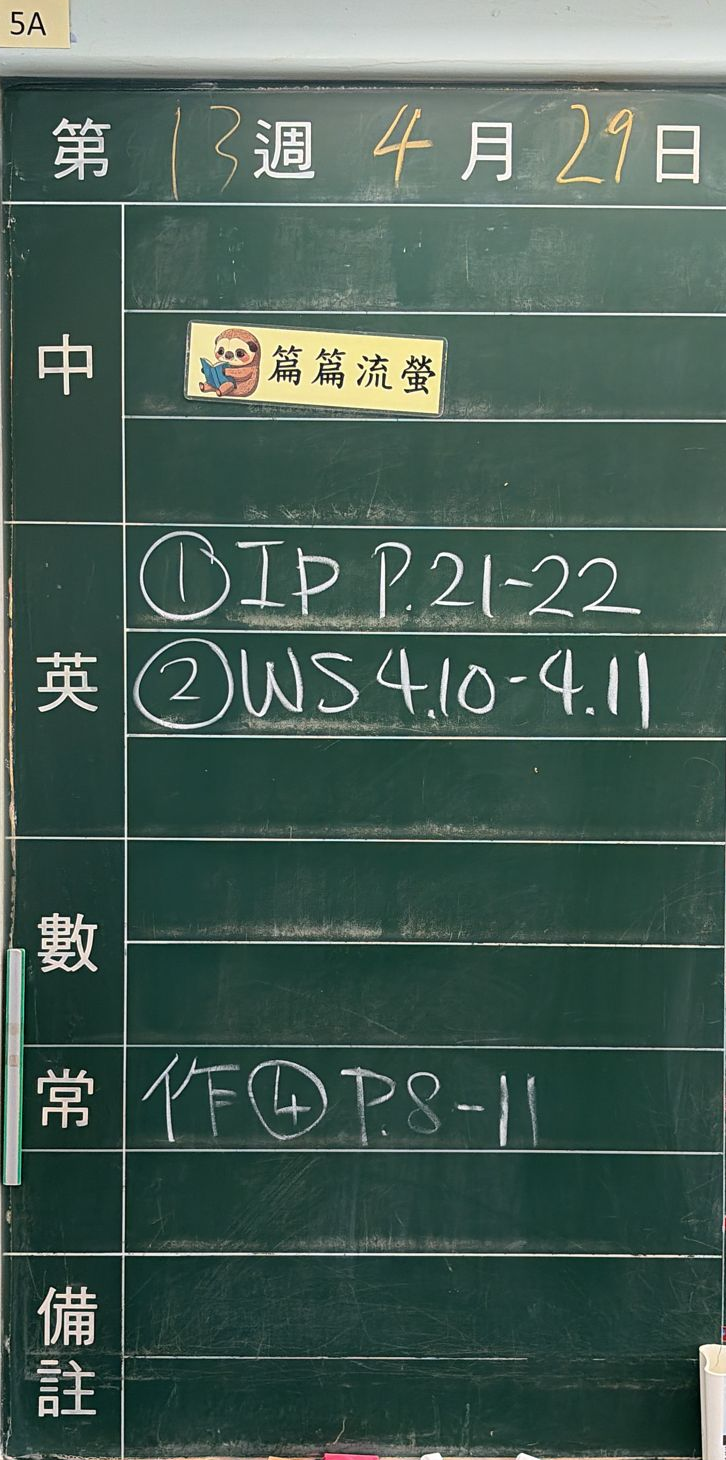 5A
第 13 週 4 月 29 日
中
篇篇流螢
英
① IP P.21-22
② WS 4.10-4.11
數
常
作④ P.8-11
備註